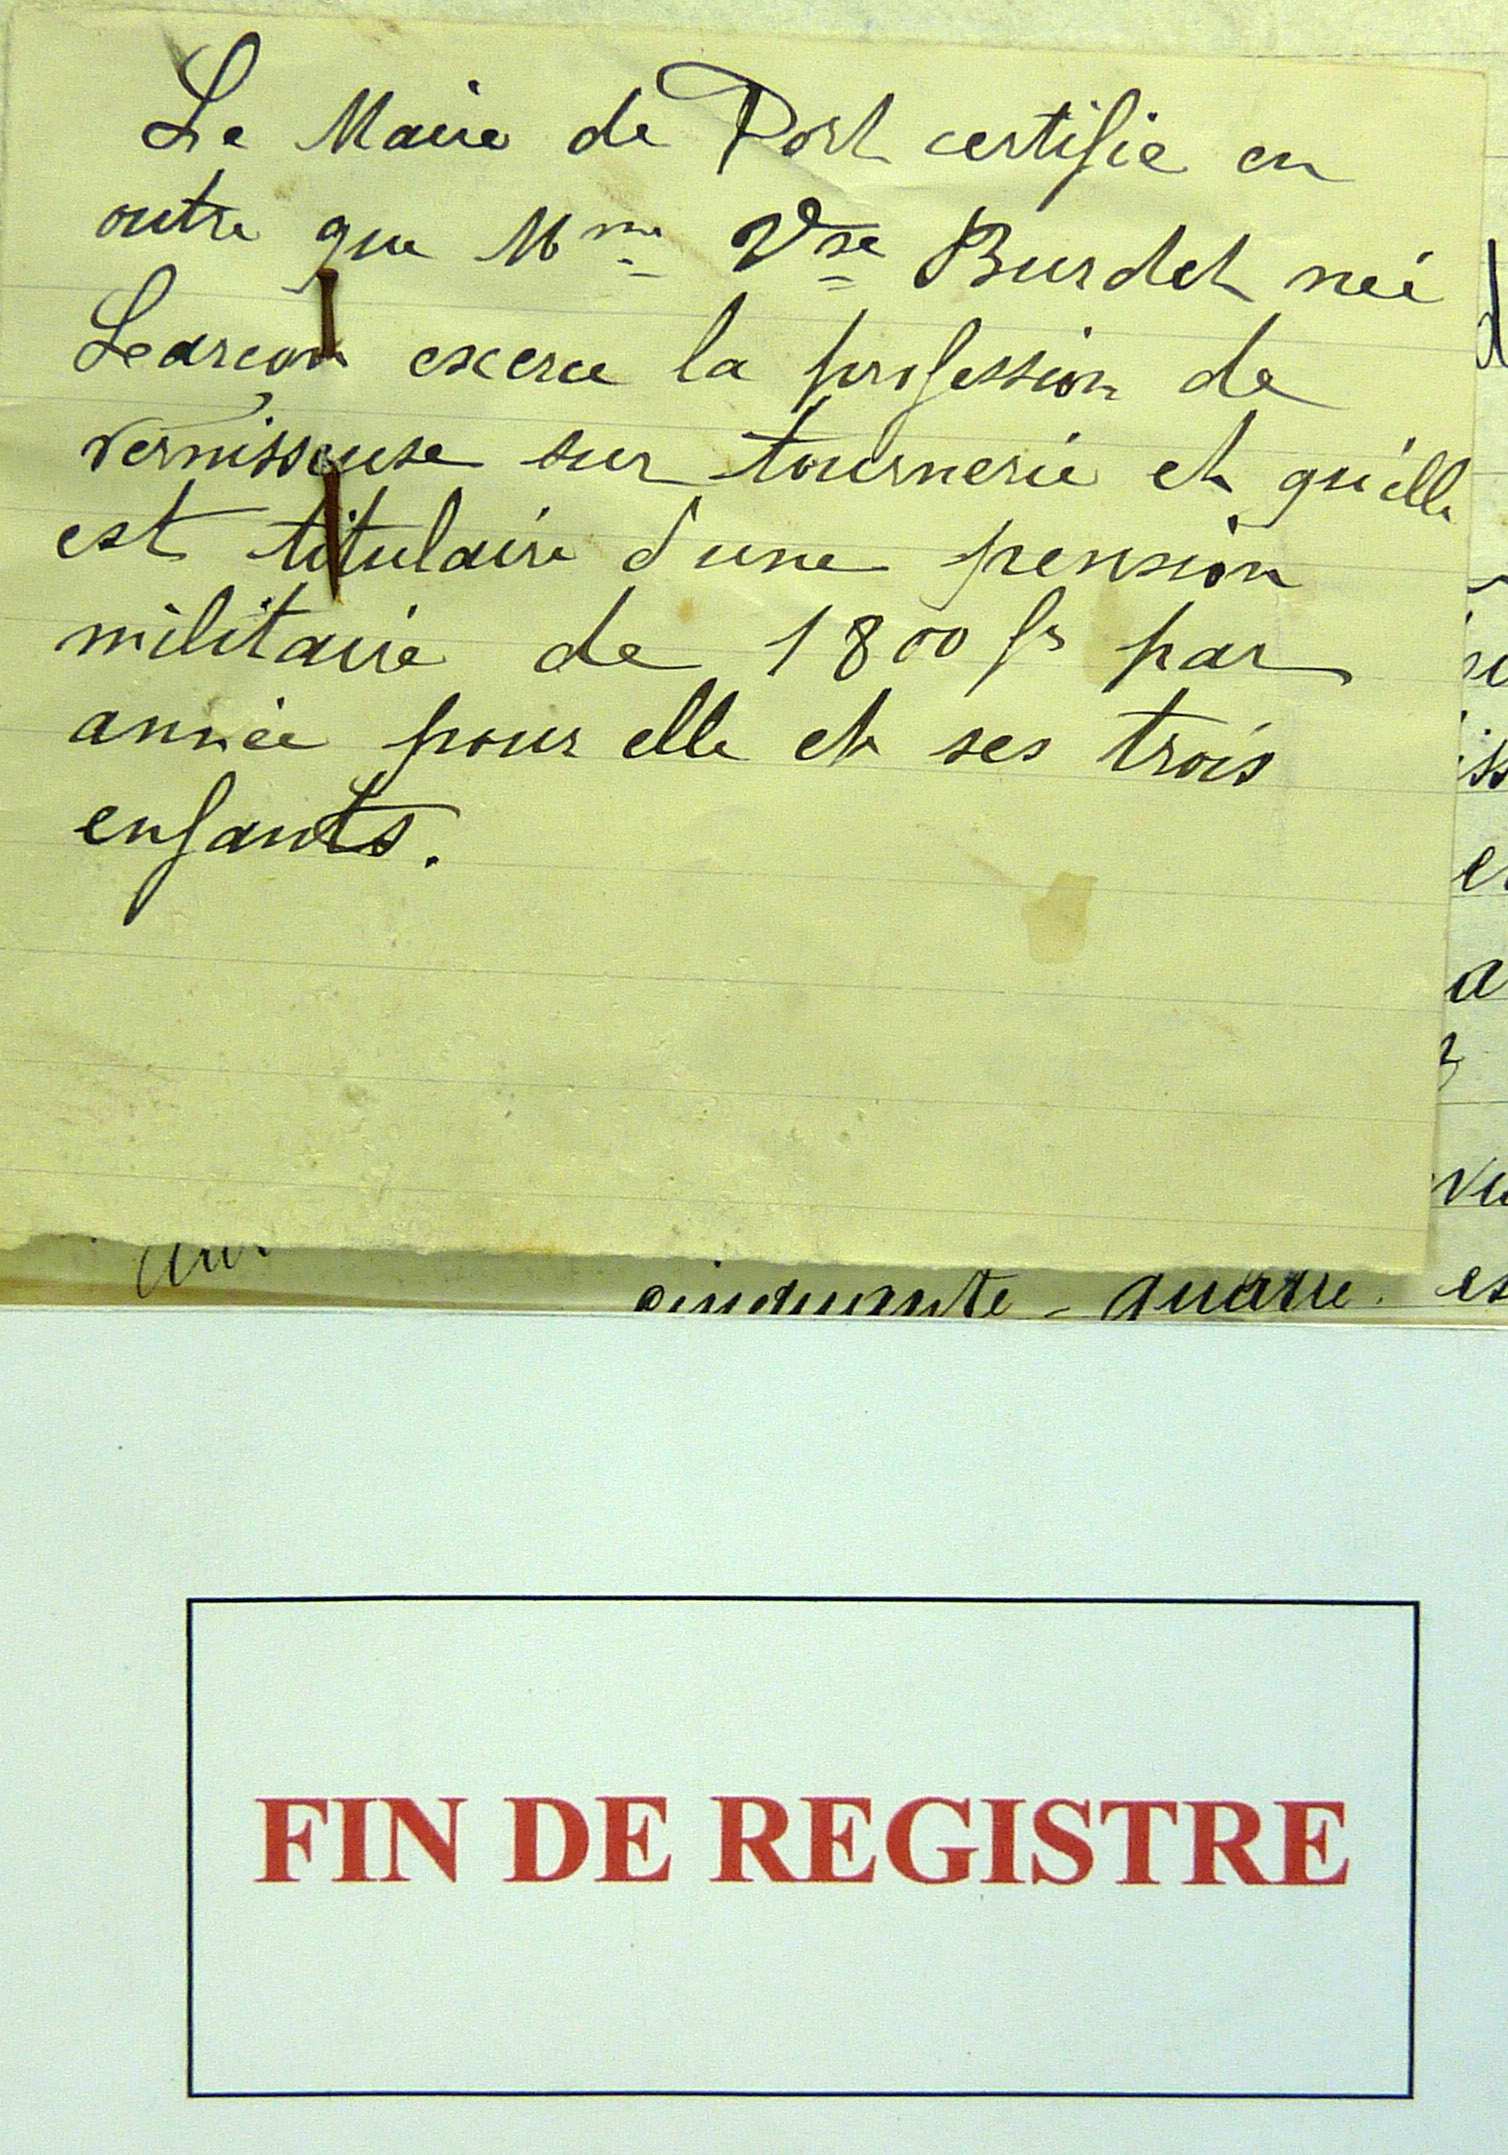 Le Maire de Port certifie en
outre que Mme Vve Burdet née
Learçon exerce la profession de
vernisseuse sur tournerie et qu'elle
est titulaire d'une pension
militaire de 1800 fs par
année pour elle et ses trois
enfants.
cinquante-quatre es
FIN DE REGISTRE